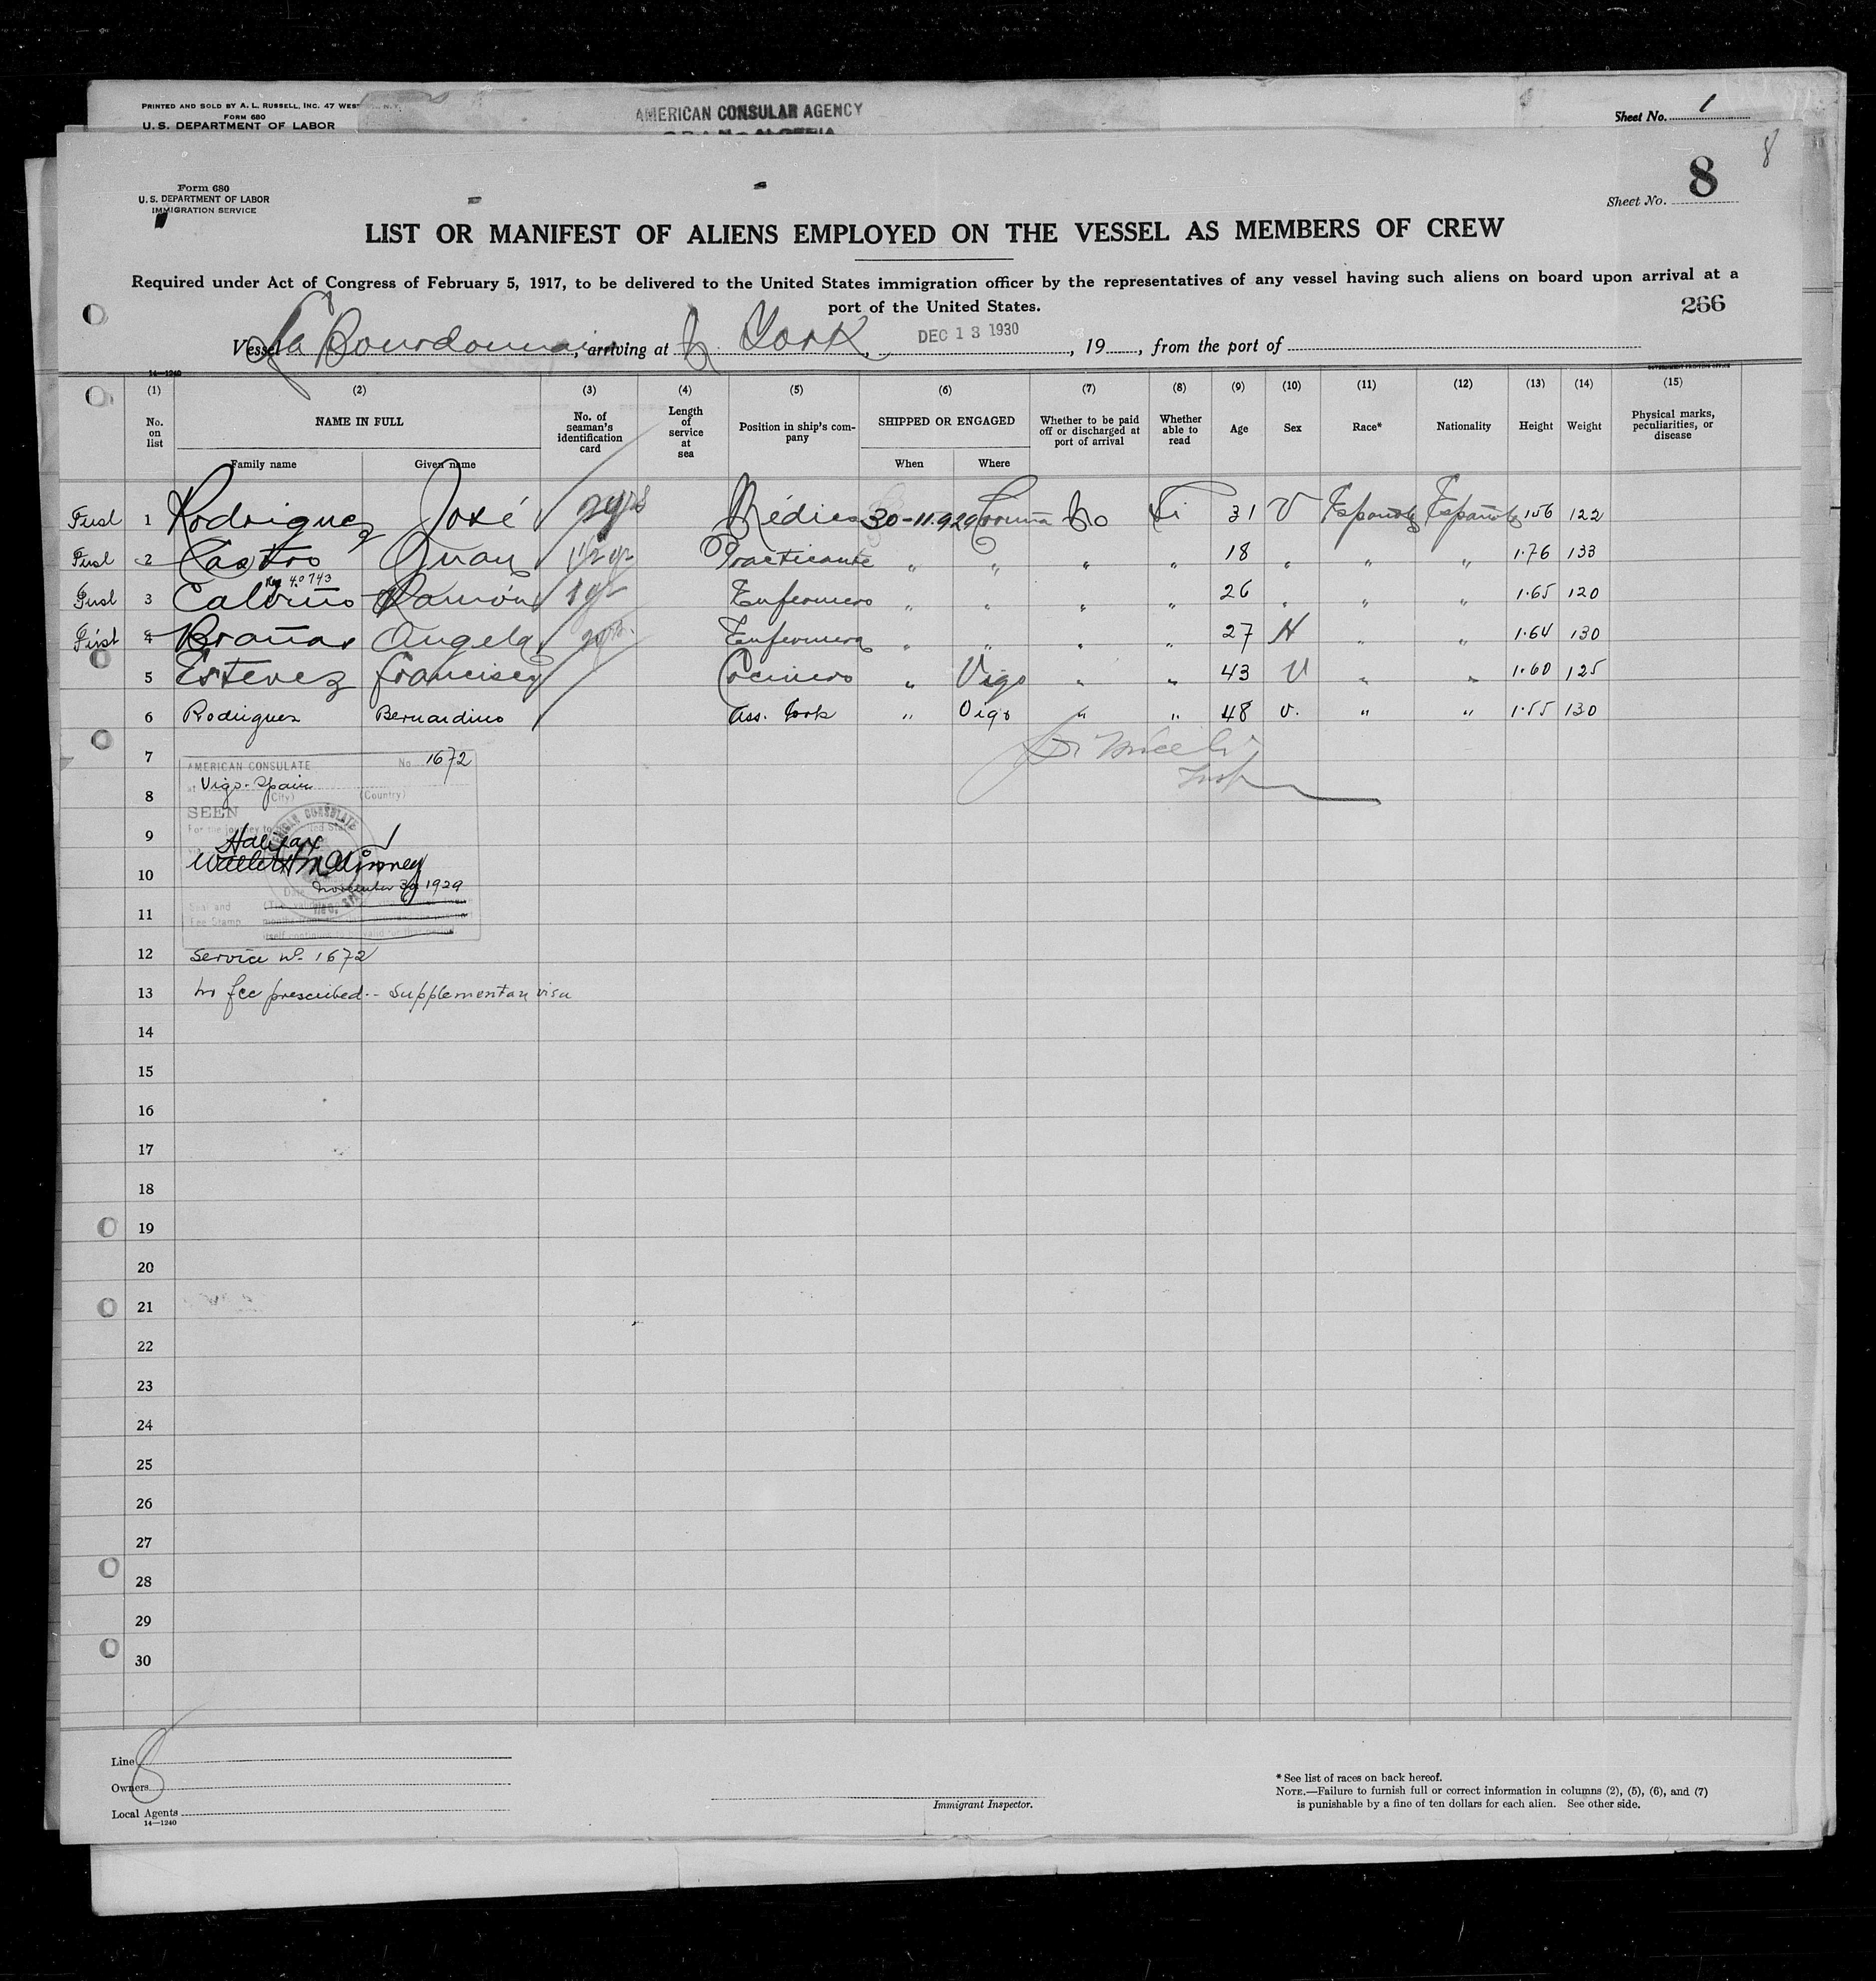 PRINTED AND SOLD BY A. L. RUSSELL, INC. 47 WEST
FORM 680
U. S. DEPARTMENT OF LABOR
AMERICAN CONSULAR AGENCY
Sheet No. 1
8
Form 680
U. S. DEPARTMENT OF LABOR
IMMIGRATION SERVICE
Sheet No. 8
LIST OR MANIFEST OF ALIENS EMPLOYED ON THE VESSEL AS MEMBERS OF CREW
Required under Act of Congress of February 5, 1917, to be delivered to the United States immigration officer by the representatives of any vessel having such aliens on board upon arrival at a
port of the United States.
266
Vessel La Bourdonnais, arriving at N. York, DEC 13 1930, 19, from the port of
14—1240
GOVERNMENT PRINTING OFFICE
(1) (2) (3) (4) (5) (6) (7) (8) (9) (10) (11) (12) (13) (14) (15)
No. on list NAME IN FULL No. of seaman's identification card Length of service at sea Position in ship's company SHIPPED OR ENGAGED Whether to be paid off or discharged at port of arrival Whether able to read Age Sex Race* Nationality Height Weight Physical marks, peculiarities, or disease
Family name Given name When Where
1 Rodriguez José 2 yrs Médico 30-11-929 Coruña No Si 31 V Española Española 1.56 122
2 Castro Juan 1 1/2 yr Practicante " " " " 18 " " " 1.76 133
40743
3 Calviño Ramón 1 yr Enfermero " " " " 26 " " " 1.65 120
First 4 Brañas Angela 2 yrs. Enfermera " " " " 27 H " " 1.64 130
5 Estevez Francisco Cocinero " Vigo " " 43 V " " 1.60 125
6 Rodriguez Bernardino Ass. Cook " Vigo " " 48 V. " " 1.55 130
7
AMERICAN CONSULATE No. 1672
at Vigo-Spain
(City) (Country)
8
SEEN
For the journey to United States
9
Halifax
Walter H. McKinney
10
November 30, 1929
11
Seal and
Fee Stamp
itself continues to be valid for that period
12 Service No. 1672
13 No fee prescribed-- Supplementary visa
14
15
16
17
18
19
20
21
22
23
24
25
26
27
28
29
30
8
Line
Owners
Local Agents
14—1240
Immigrant Inspector.
* See list of races on back hereof.
NOTE.—Failure to furnish full or correct information in columns (2), (5), (6), and (7)
is punishable by a fine of ten dollars for each alien. See other side.